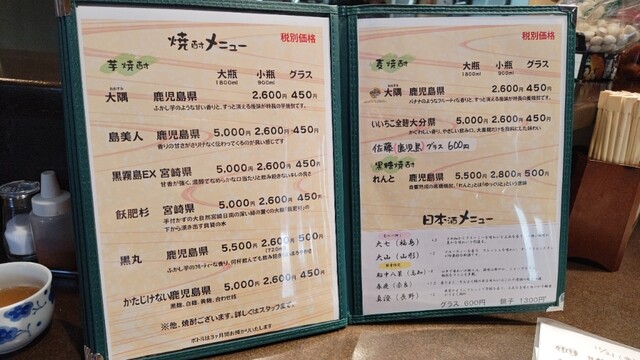 焼酎メニュー
税別価格
芋焼酎
大瓶 小瓶 グラス
(1800ml) (900ml)
おおすみ
大隅 鹿児島県 2.600円 450円
ふかし芋のような甘い香りと、すっと消える後味が特長の芋焼酎です。
島美人 鹿児島県 5.000円 2.600円 450円
香りの甘さがさりげなく伝わってくるのが良い感じです
黒霧島EX 宮崎県 5.000円 2.600円 450円
飫肥杉 宮崎県 5.000円 2.600円 450円
下から湧き出す良質の水
黒丸 鹿児島県 5.500円 2.600円 500円
(720ml)
かたじけない 鹿児島県 5.000円 2.600円 450円
黒麹、白麹、黄麹、合わせ技
※他、焼酎ございます。詳しくはスタッフまで。
ボトルは3ヶ月間お預かりいたします
税別価格
麦焼酎
大瓶 小瓶 グラス
(1800ml) (900ml)
大隅 鹿児島県 2.600円 450円
バナナのようなフルーティな香りと、すっと消える後味が特長の麦焼酎です。
いいちこ全麹 大分県 5.000円 2.600円 450円
佐藤(鹿児島) グラス 600円
黒糖焼酎
れんと 鹿児島県 5.500円 2.800円 500円
日本酒メニュー
大七(福島)
大山(山形)
船中八策(高知)
春鹿(奈良)
真澄(長野)
グラス 600円 徳子 1300円